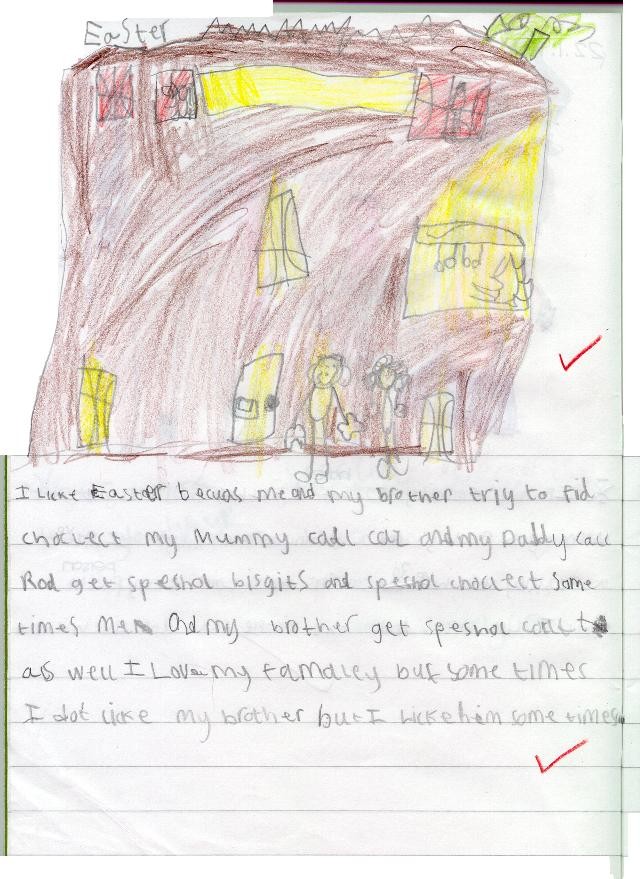 Easter
I Licke Easter becuas me and my brother triy to fid
choclect my Mummy call caz and my Daddy call
Rod get speshol bisgits and speshol choclest Some
times Me And my brother get speshol
as well I Love my famaley but some times
I dot licke my brother but I Licke him some times